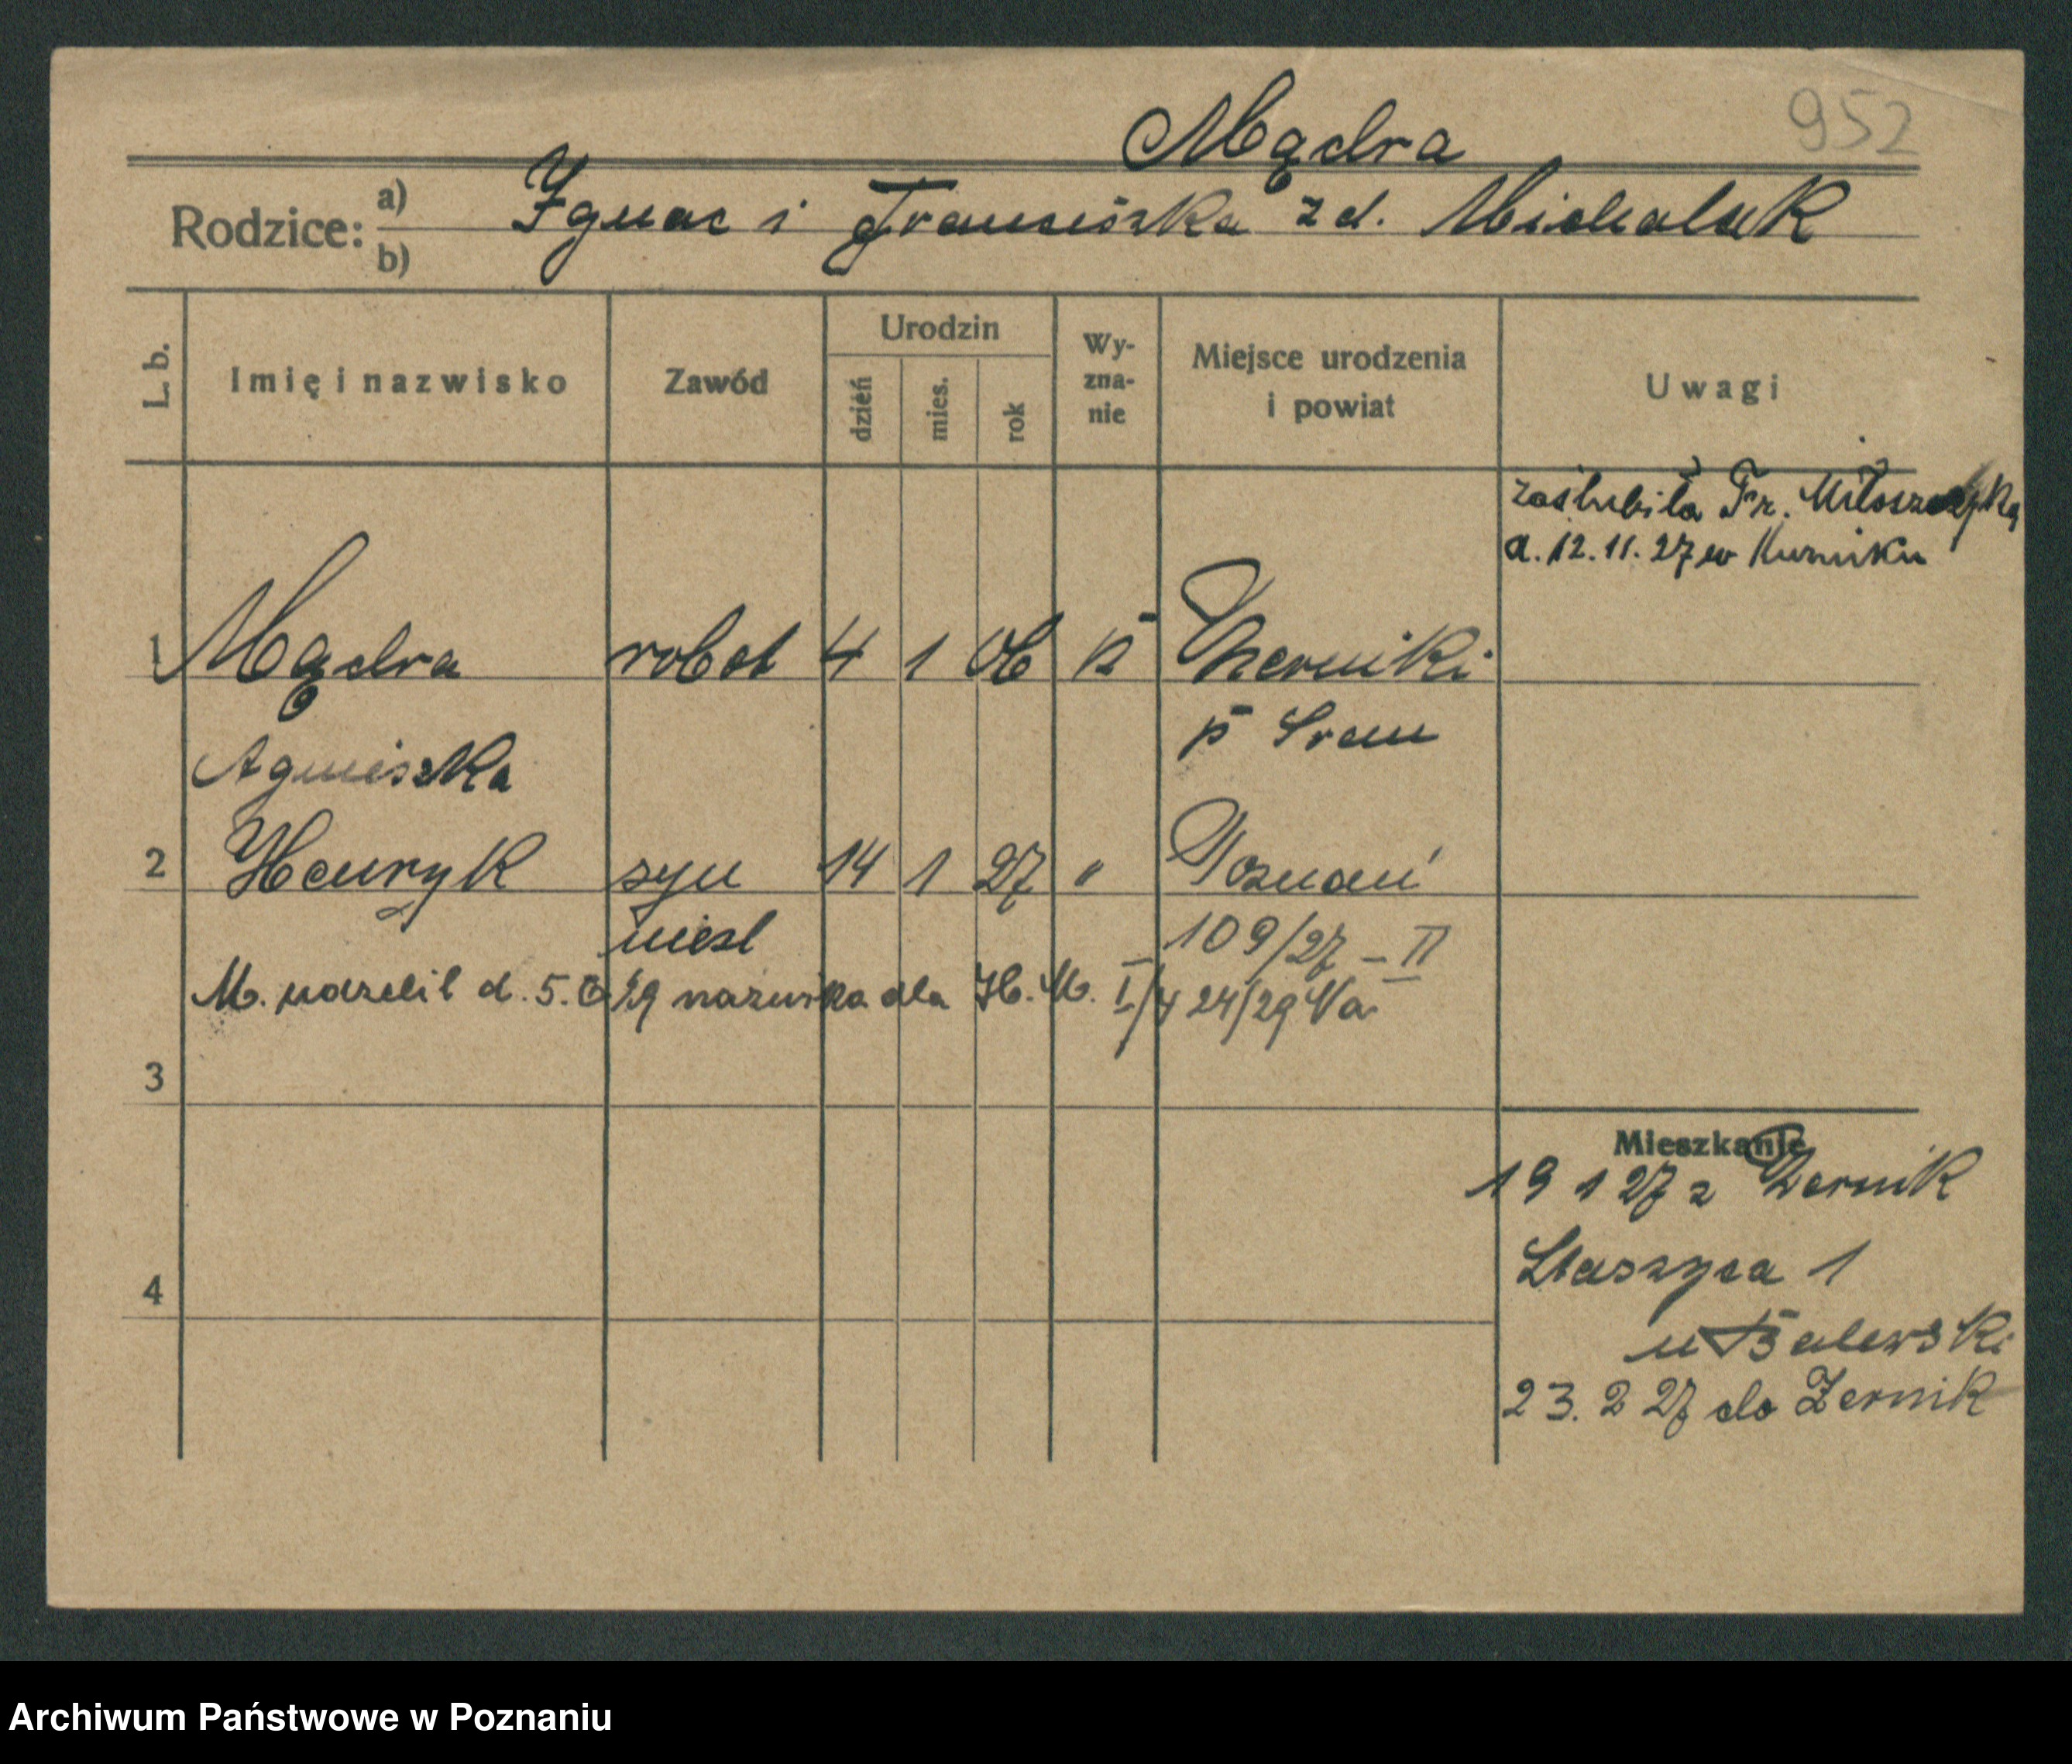 Mądra
952
Rodzice: a) b)
Ignac i Franciszka z d. Michalak
L. b.
Imię i nazwisko
Zawód
Urodzin
dzień
mies.
rok
Wy-
zna-
nie
Miejsce urodzenia
i powiat
Uwagi
zaślubiła Fr.
d. 12.11.27 w Kurniku
1 Mądra robot 4 1 06 k Żerniki
Agnieszka p Śrem
2 Henryk syn 14 1 27 " Poznań
nieśl 109/27 – II
M. udzielił d. 5. /29 nazwiska dla H. M. I/4 24/29 Va
3
4
Mieszkanie
19 1 27 z Żernik
Staszyca 1
u Balewski
23. 2 27 do Żernik
Archiwum Państwowe w Poznaniu